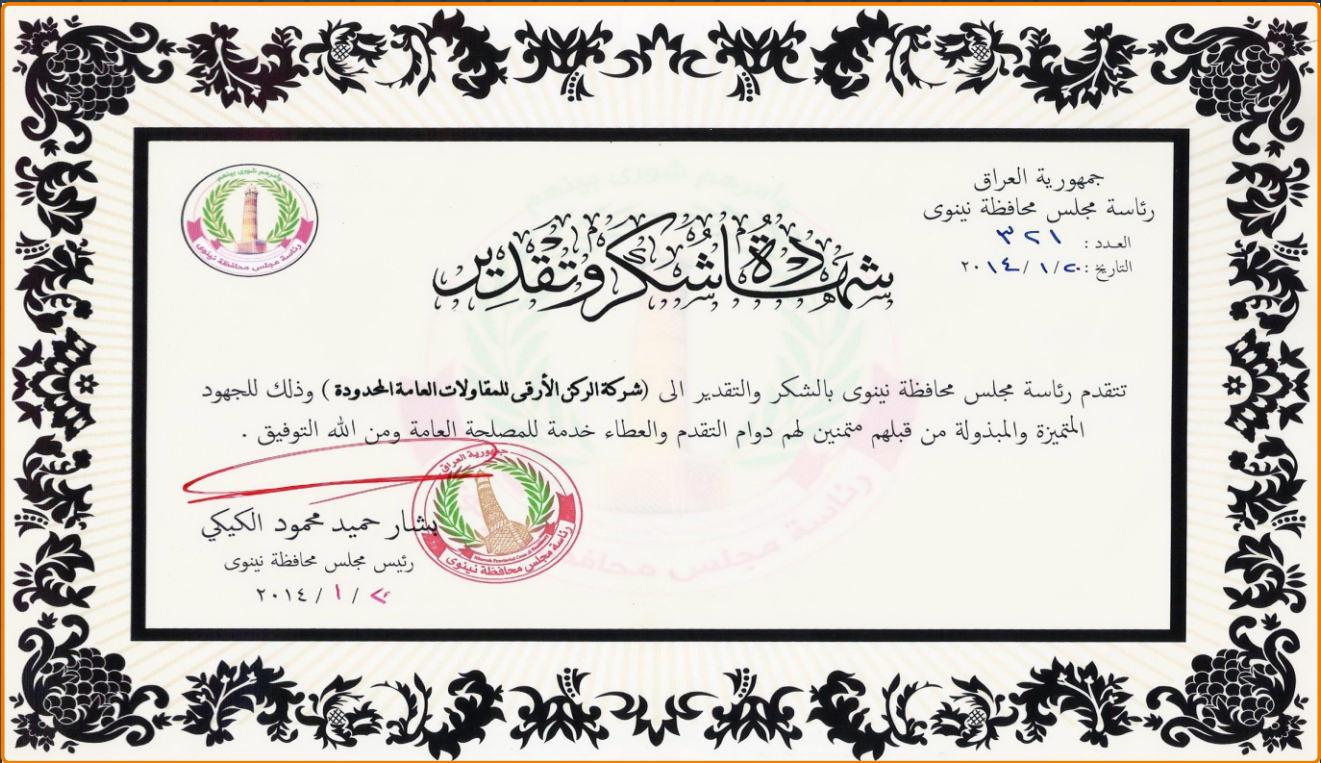 جمهورية العراق
رئاسة مجلس محافظة نينوى
العدد : ٣٢١
التاريخ : ٢٠ / ١ / ٢٠١٤
وأمرهم شورى بينهم
رئاسة مجلس محافظة نينوى
شهادة شكر وتقدير
تتقدم رئاسة مجلس محافظة نينوى بالشكر والتقدير الى (شركة الركن الأرقى للمقاولات العامة المحدودة ) وذلك للجهود
المتميزة والمبذولة من قبلهم متمنين لهم دوام التقدم والعطاء خدمة للمصلحة العامة ومن الله التوفيق .
جمهورية العراق
رئاسة مجلس محافظة نينوى
بشار حميد محمود الكيكي
رئيس مجلس محافظة نينوى
٢٠ / ١ / ٢٠١٤